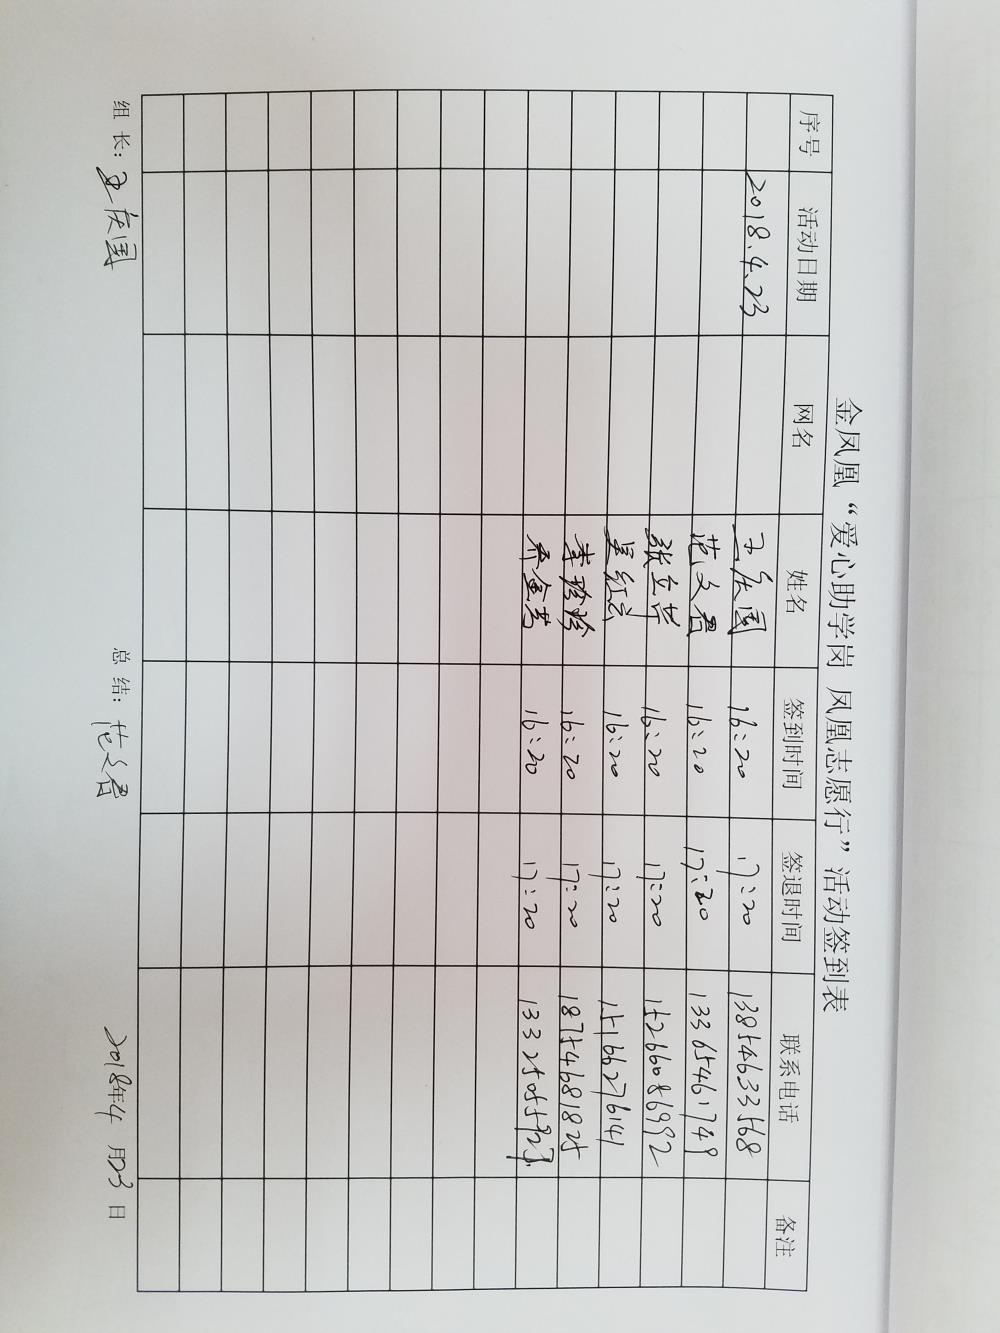 金凤凰“爱心助学岗 凤凰志愿行”活动签到表
序号 活动日期 网名 姓名 签到时间 签退时间 联系电话 备注
2018.4.23 王庆国 16:20 17:20 13854633568
范文君 16:20 17:20 13365461749
张立苹 16:20 17:20 15266086992
吴红云 16:20 17:20 15166276141
李玲玲 16:20 17:20 18754681825
乔金芳 16:20 17:20
组 长: 王庆国 总 结: 范文君 2018年4月23日